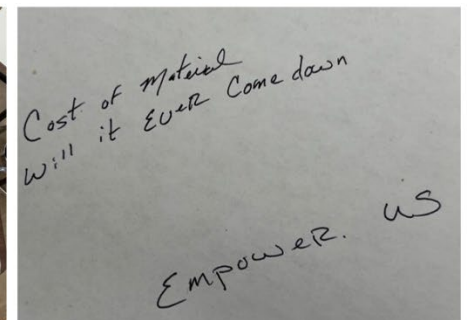 Cost of Material
Will it Ever Come down
Empower. us